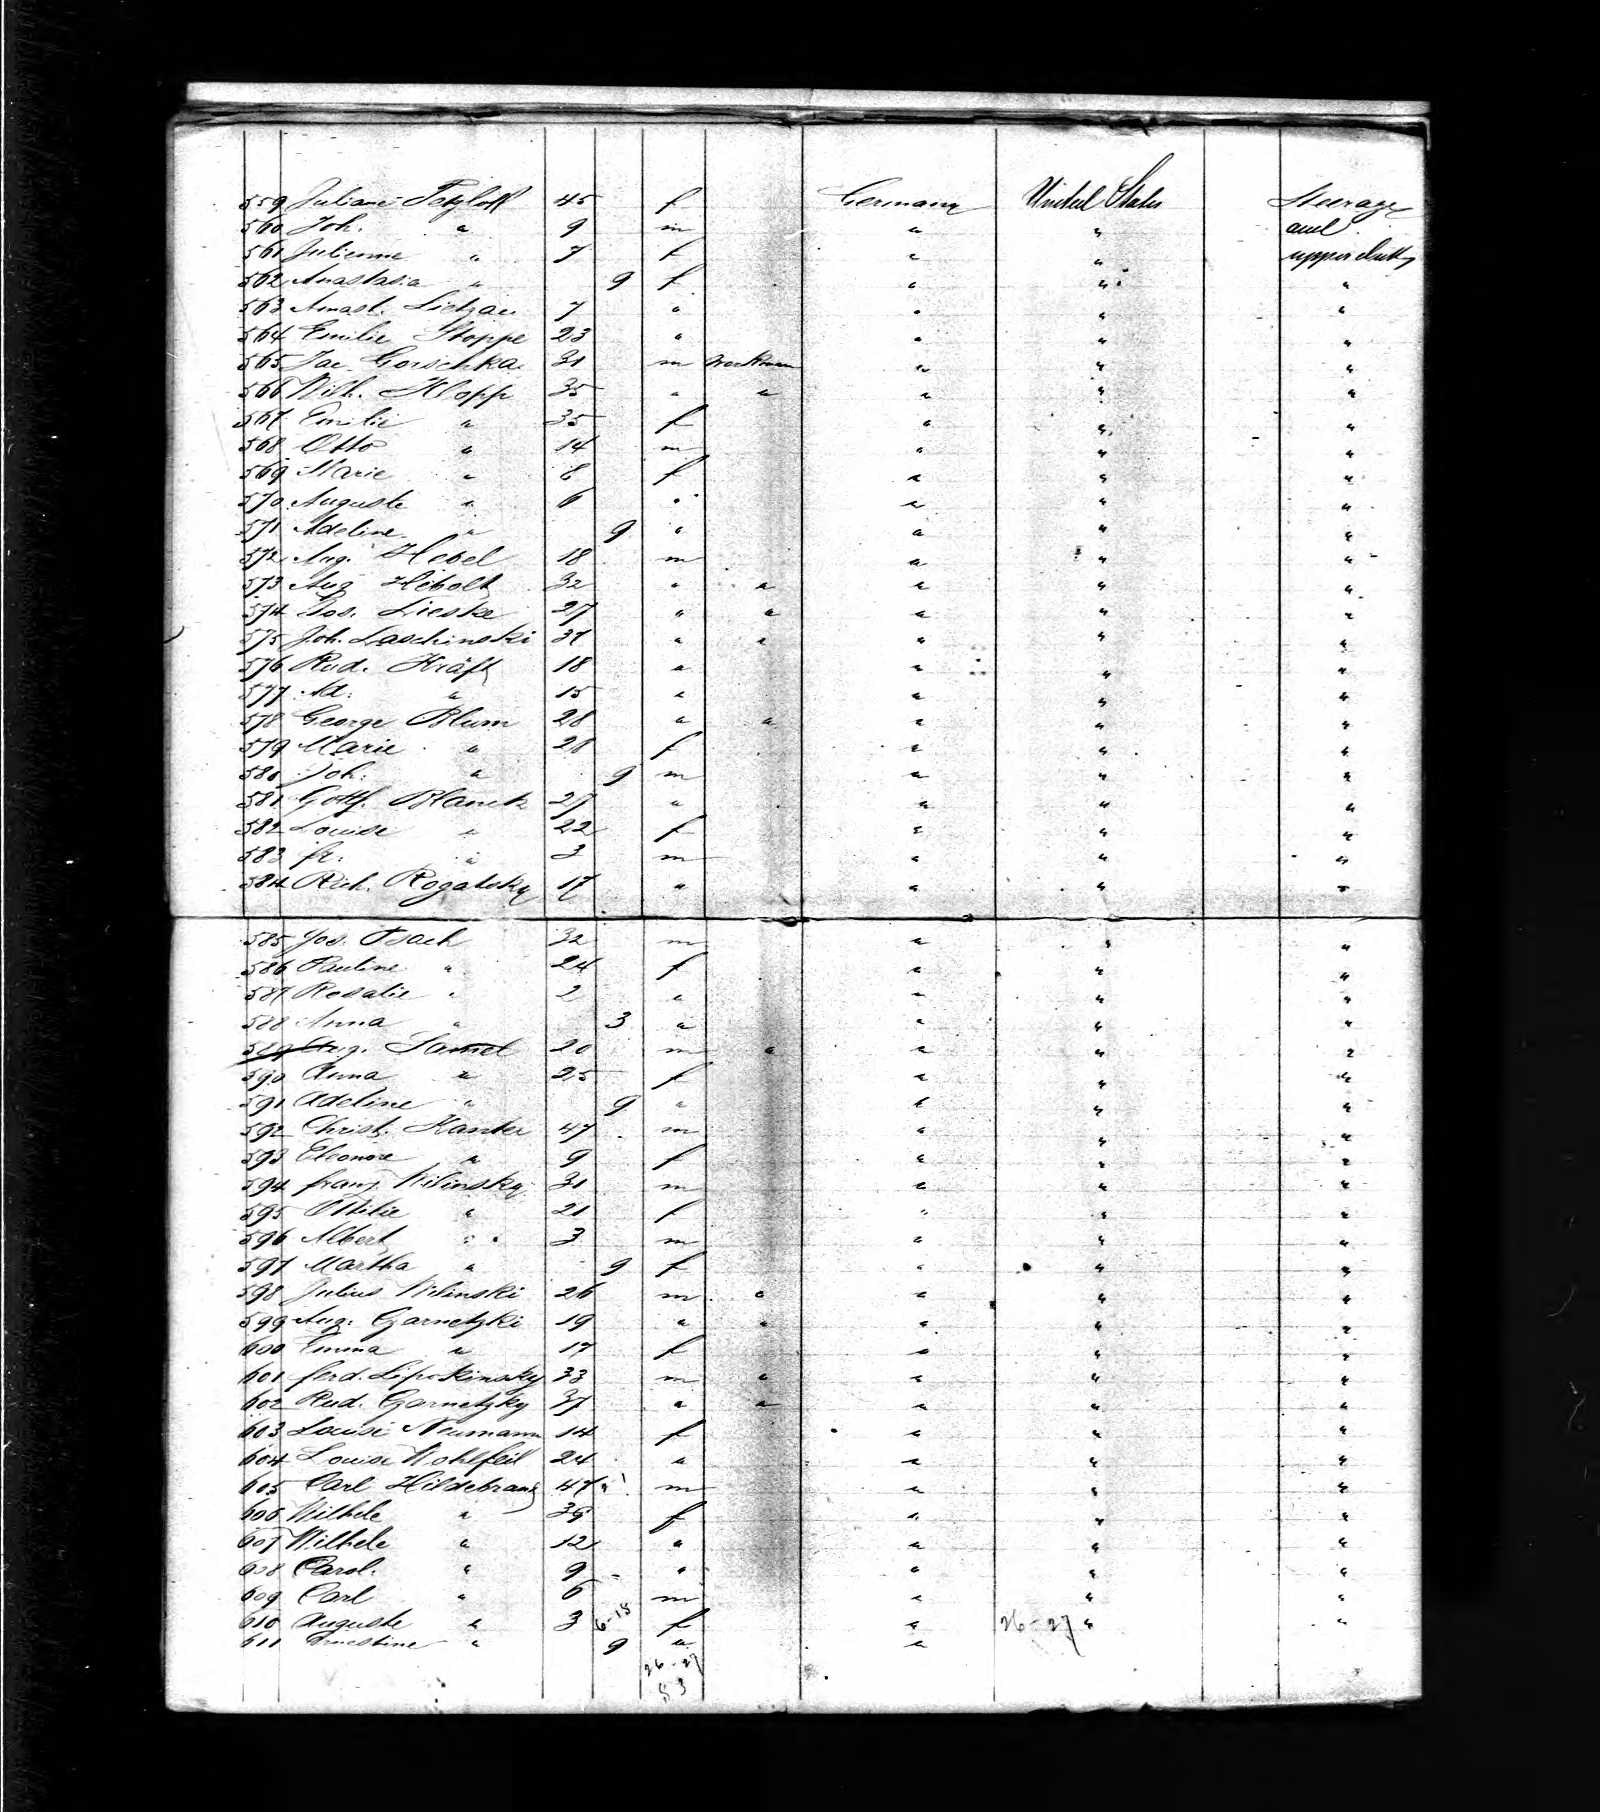 559 Juliane Petzloff 45 f Germany United States Steerage
560 Joh. " 9 m " " and
561 Julienne " 7 f " " upper deck
562 Anastasia " 9 f " " "
563 Anast. Lietzau 7 " " " "
564 Emilie Stoppe 23 " " " "
565 Jac. Gorschka 31 m workman " " "
566 Wilh. Klopp 35 " " " " "
567 Emilie " 35 f " " "
568 Otto " 14 m " " "
569 Marie " 8 f " " "
570 Auguste " 6 " " " "
571 Adeline " 9 " " " "
572 Aug. Hebel 18 m " " "
573 Aug. Hebolt 32 " " " " "
574 Jos. Lieske 27 " " " " "
575 Joh. Laschinski 37 " " " " "
576 Rud. Kräft 18 " " " "
577 Ad. " 15 " " " "
578 George Blum 28 " " " " "
579 Marie " 28 f " " "
580 Joh. " 9 m " " "
581 Gottf. Blanck 27 " " " "
582 Louise " 22 f " " "
583 fr. " 3 m " " "
584 Rich. Rogatsky 17 " " " "
585 Jos. 32 m " " "
586 Pauline " 24 f " " "
587 Rosalie " 2 " " " "
588 Anna " 3 " " " "
589 Aug. Samel 20 m " " " "
590 Anna " 25 f " " "
591 Adeline " 9 " " " "
592 Christ. Kanter 47 m " " "
593 Eleonore " 9 f " " "
594 franz Wilinsky 31 m " " "
595 Ottilie " 21 f " " "
596 Albert " 3 m " " "
597 Martha " 9 f " " "
598 Julius Wilinski 26 m " " " "
599 Aug. Garnetzki 19 " " " " "
600 Emma " 17 f " " "
601 ferd. Lipskinsky 33 m " " " "
602 Rud. Garnetzky 37 " " " " "
603 Louise Neumann 14 f " " "
604 Louise Wohlfeil 24 " " " "
605 Carl Hildebrand 47 m " " "
606 Wilhele " 39 f " " "
607 Wilhele " 12 " " " "
608 Carol. " 9 " " " "
609 Carl " 6 m " " "
610 Auguste " 3 6-18 f " 26-27 " "
611 Ernestine " 9 " "
26-27
53